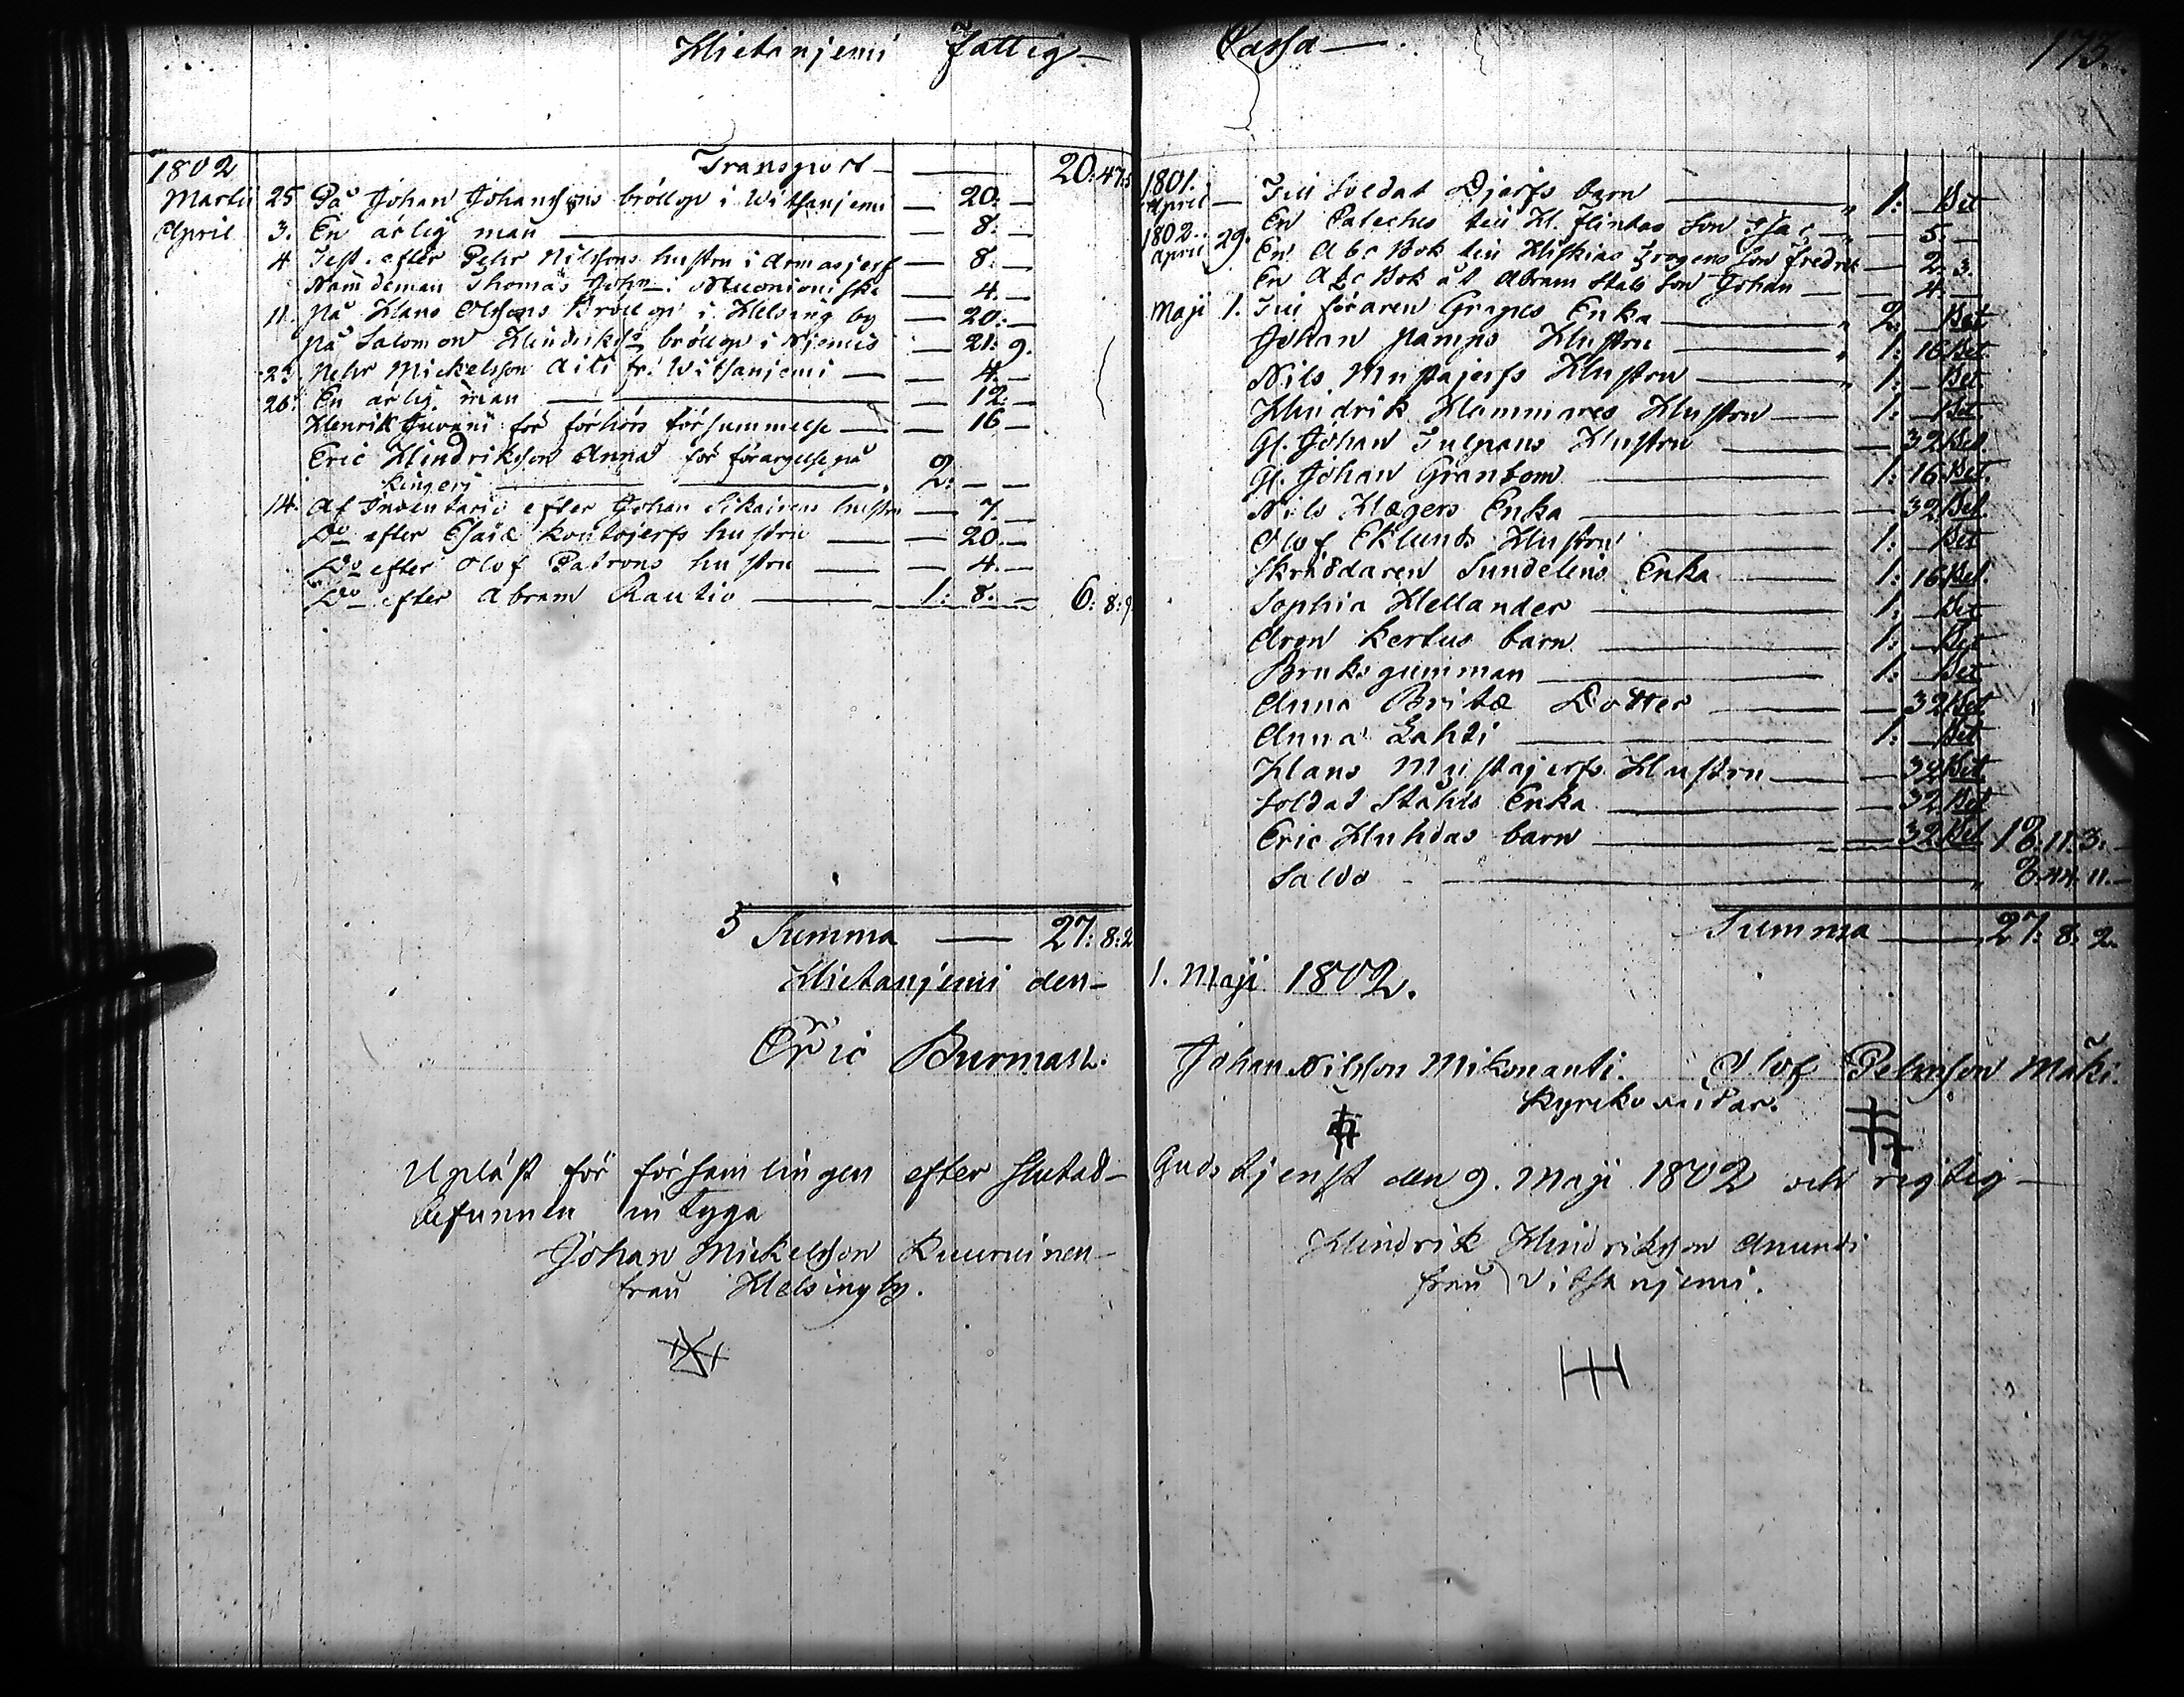 Hietanjemi Fattig-
1802 Transport — 20:47:5
Martii 25 På Johan Johanssons bröllop i Witsanjemi — 20:—
April 3. En ärlig man — 8:—
4 Test. efter Pehr Nilssons hustru i Armasjerf — 8:—
Nämdeman Thomas John i Muonioniska — 4.—
11. på Hans Olssons Bröllop i Helsing by — 20:—
på Salomon Hindrikss bröllop i Njemis — 21: 9.
Pehr Mickelsson Aili fr. Witsanjemi — 4.—
26. En ärlig man — 12:—
Henrik Juvani för förhörs försummelse — 16 —
Eric Hindriksson Anna för förargelse på
kingerj — 2:—
14. Af Inventario efter Johan Sikainens hustru — 7.—
Do efter Esaiæ Kontojerfs hustru — 20.—
Do efter Olof Patrons hustru — 4.—
Do efter Abram Rautio — 1: 8.— 6: 8: 9
Summa — 27: 8: 2
Hietanjemi den-
Eric Burman.
Upläst för församlingen efter slutad-
befunnen intyga
Johan Mickelsson Kuuruinen
från Helsingby.
Cassa —
173.
1801.
April — Till Soldat Djerfs barn — 1: — Bet
En Cateches till H. Flintas Son Isac — 5. —
1802.
April 29. En Abc Bok till Hiskias Frogens Son Fredrik — 2. 3.
En Abc Bok åt Abram Stals Son Johan — 4.—
Maji 1. Till föraren Grapes Enka — 2. — Bet
Johan Pamps Hustru — 1: 16 Bet.
Nils Mustajerfs Hustru — 1: — Bet.
Hindrik Hammares Hustru — 1: — Bet.
Gl. Johan Tulpans Hustru — 32 Bet.
Gl. Johan Granbom — 1: 16 Bet.
Nils Hægers Enka — 32 Bet.
Olof Eklunds Hustru — 1: — Bet
Skräddaren Sundelins Enka — 1: 16 Bet.
Sophia Hellander — 1: — Bet
Aron Kertus barn — 1: — Bet
Bruksgumman — 1: — Bet
Anna Britæ Dotter — 32 Bet
Anna Lahti — 1: — Bet
Hans Mustajerfs Hustru — 32 Bet
Soldat Ståhls Enka — 32 Bet
Eric Huhdas barn — 32 Bet 18: 11: 3.
Saldo — 8. 44. 11.
Summa — 27: 8: 2
1. Maji 1802.
Johan Nilsson Mikonanti. Olof Pehrsson Mäki.
Kyrkovärdar.
Gudstjenst den 9. Maji 1802 och rigtig —
Hindrik Hindriksson Anundi
från Vitsanjemi.